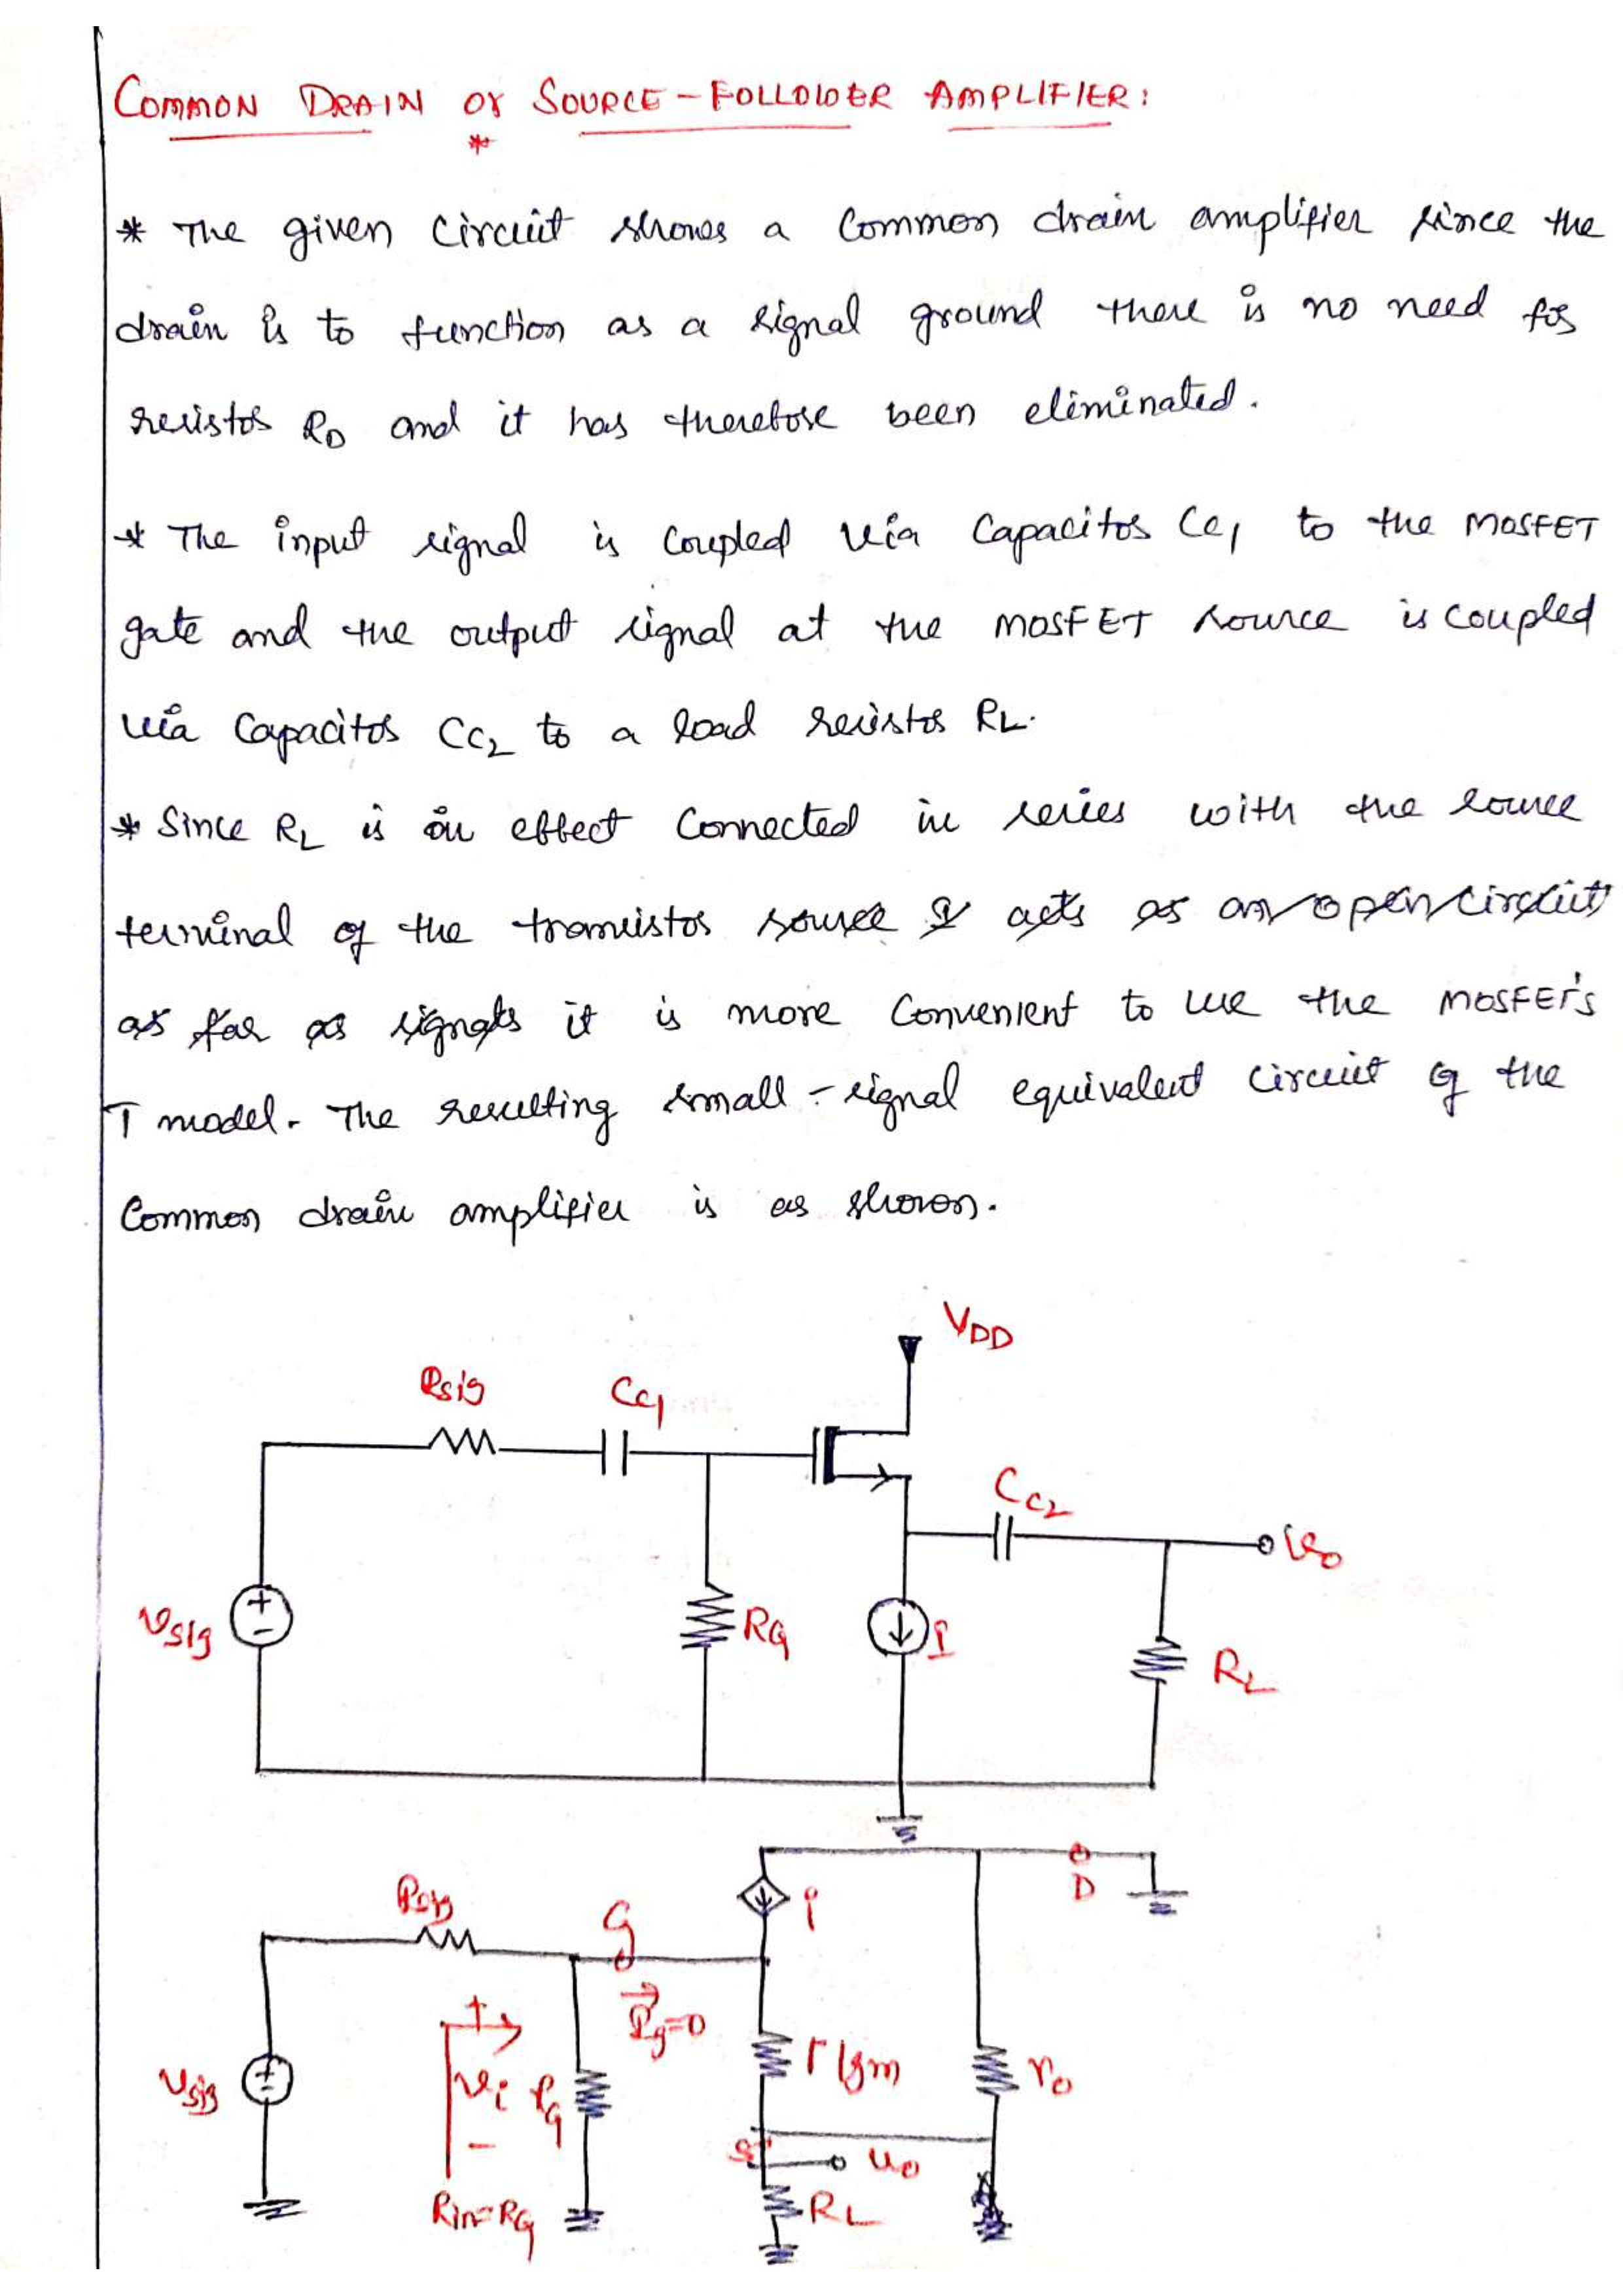 COMMON DRAIN or SOURCE-FOLLOWER AMPLIFIER:
*
* The given circuit shows a Common drain amplifier since the
drain is to function as a signal ground there is no need for
resistor RD and it has therefore been eliminated.
* The input signal is coupled via Capacitor CC1 to the MOSFET
gate and the output signal at the MOSFET source is coupled
via Capacitor CC2 to a load resistor RL.
* Since RL is in effect connected in series with the source
terminal of the transistor source I acts as an open circuit
as far as signals it is more Convenient to use the MOSFET's
T model. The resulting small-signal equivalent circuit of the
Common drain amplifier is as shown.
VDD
Rsig CC1
CC2
vo
vsig + - RG I RL
Rsig G i D
Ig=0
vsig + - + vi - RG 1/gm ro
S vo
Rin=RG RL